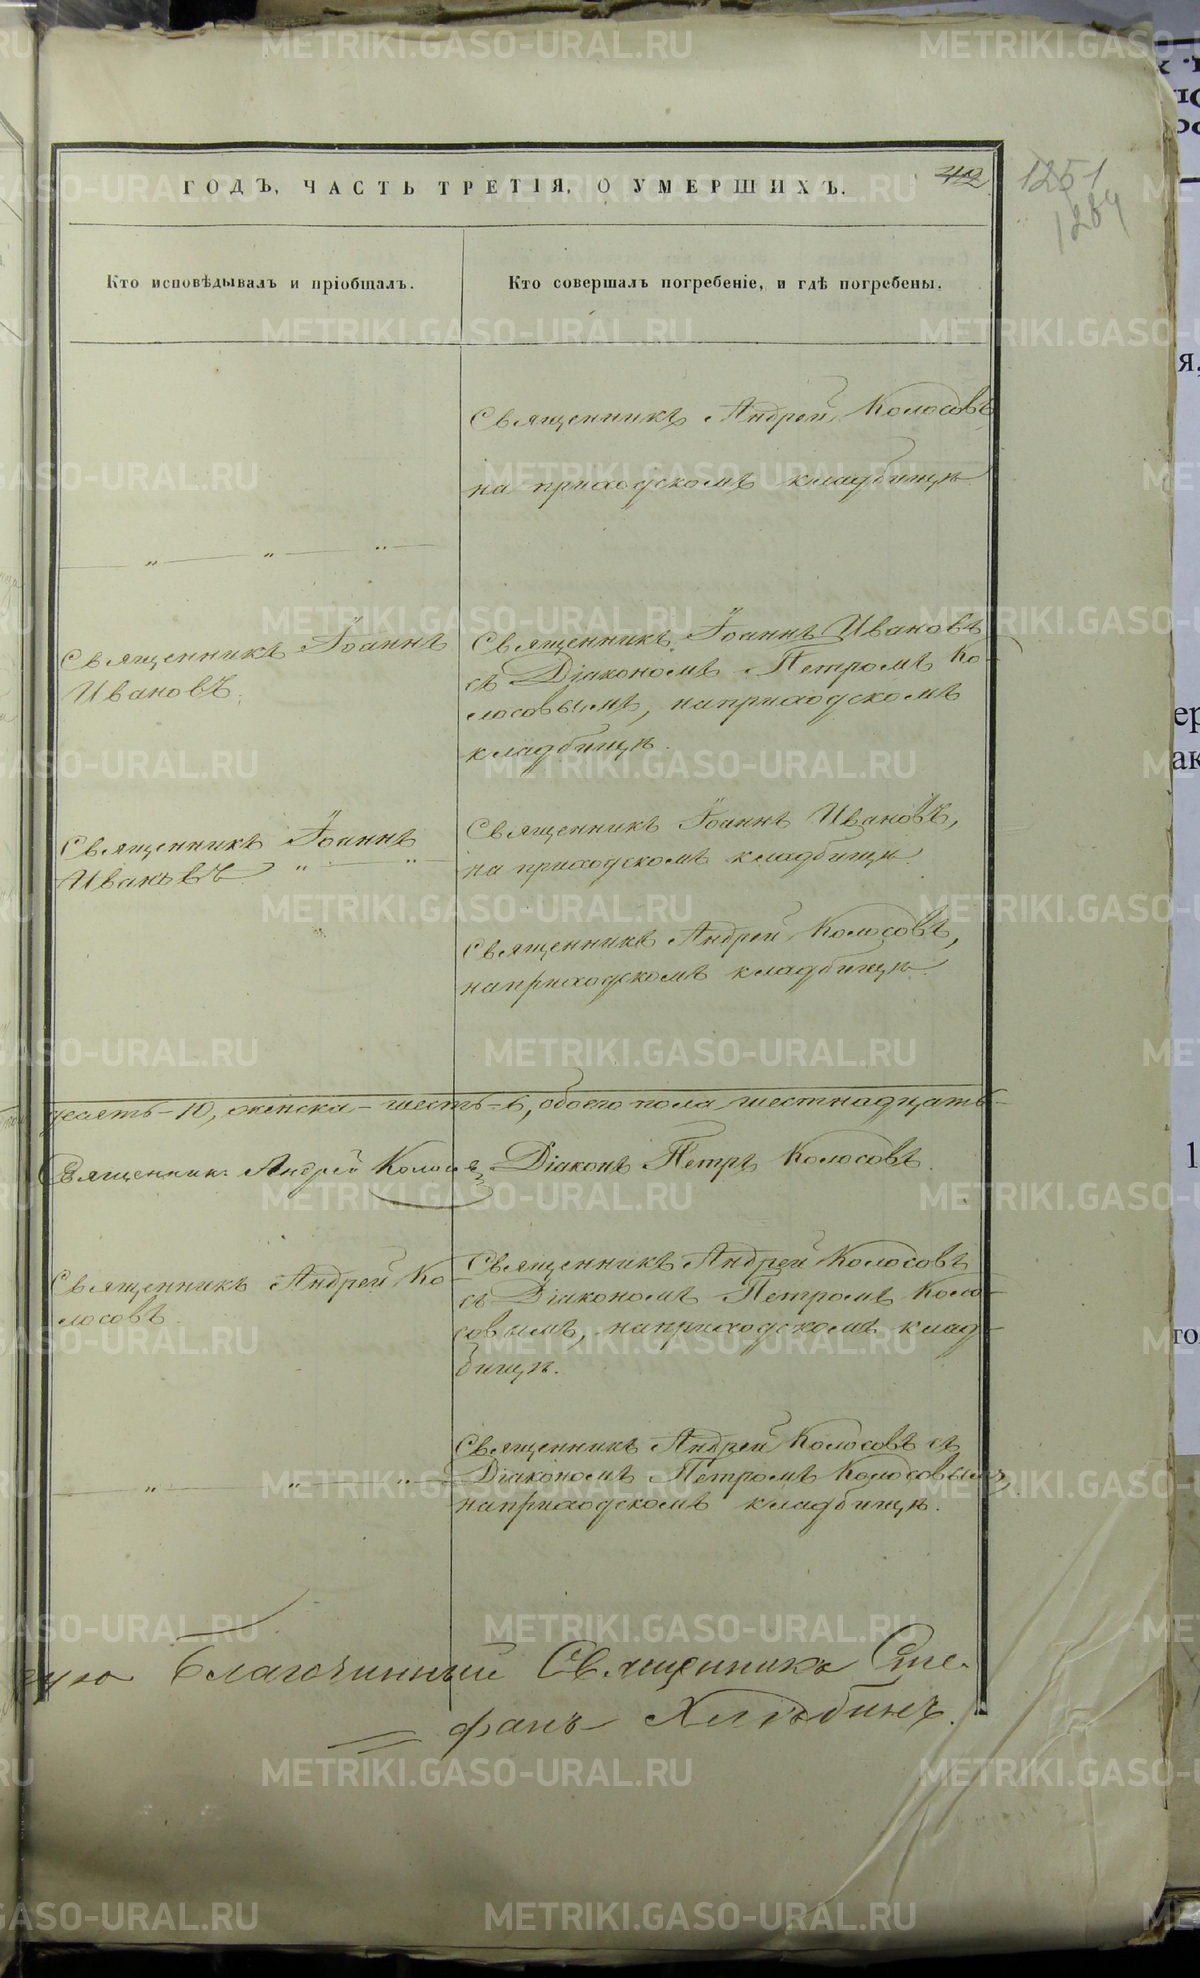 ГОДЪ, ЧАСТЬ ТРЕТІЯ, О УМЕРШИХЪ.
42
1251
1264
Кто исповѣдывалъ и пріобщалъ.
Кто совершалъ погребеніе, и гдѣ погребены.
Священникъ Андрей Колосовъ
на приходскомъ кладбищѣ
Священникъ Іоаннъ
Ивановъ.
Священникъ Іоаннъ Ивановъ
съ Діакономъ Петромъ Ко-
лосовымъ, на приходскомъ
кладбищѣ.
Священникъ Іоаннъ
Ивановъ
Священникъ Іоаннъ Ивановъ,
на приходскомъ кладбищѣ
Священникъ Андрей Колосовъ,
на приходскомъ кладбищѣ.
десять - 10, женска - шесть - 6, обоего пола шестнадцать
Священникъ Андрей Колосовъ Діаконъ Петръ Колосовъ.
Священникъ Андрей Ко-
лосовъ.
Священникъ Андрей Колосовъ
съ Діакономъ Петромъ Коло-
совымъ, на приходскомъ клад-
бищѣ.
Священникъ Андрей Колосовъ съ
Діакономъ Петромъ Колосовымъ
на приходскомъ кладбищѣ.
Благочинный Священникъ Сте-
фанъ Хлѣбинъ.
METRIKI.GASO-URAL.RU